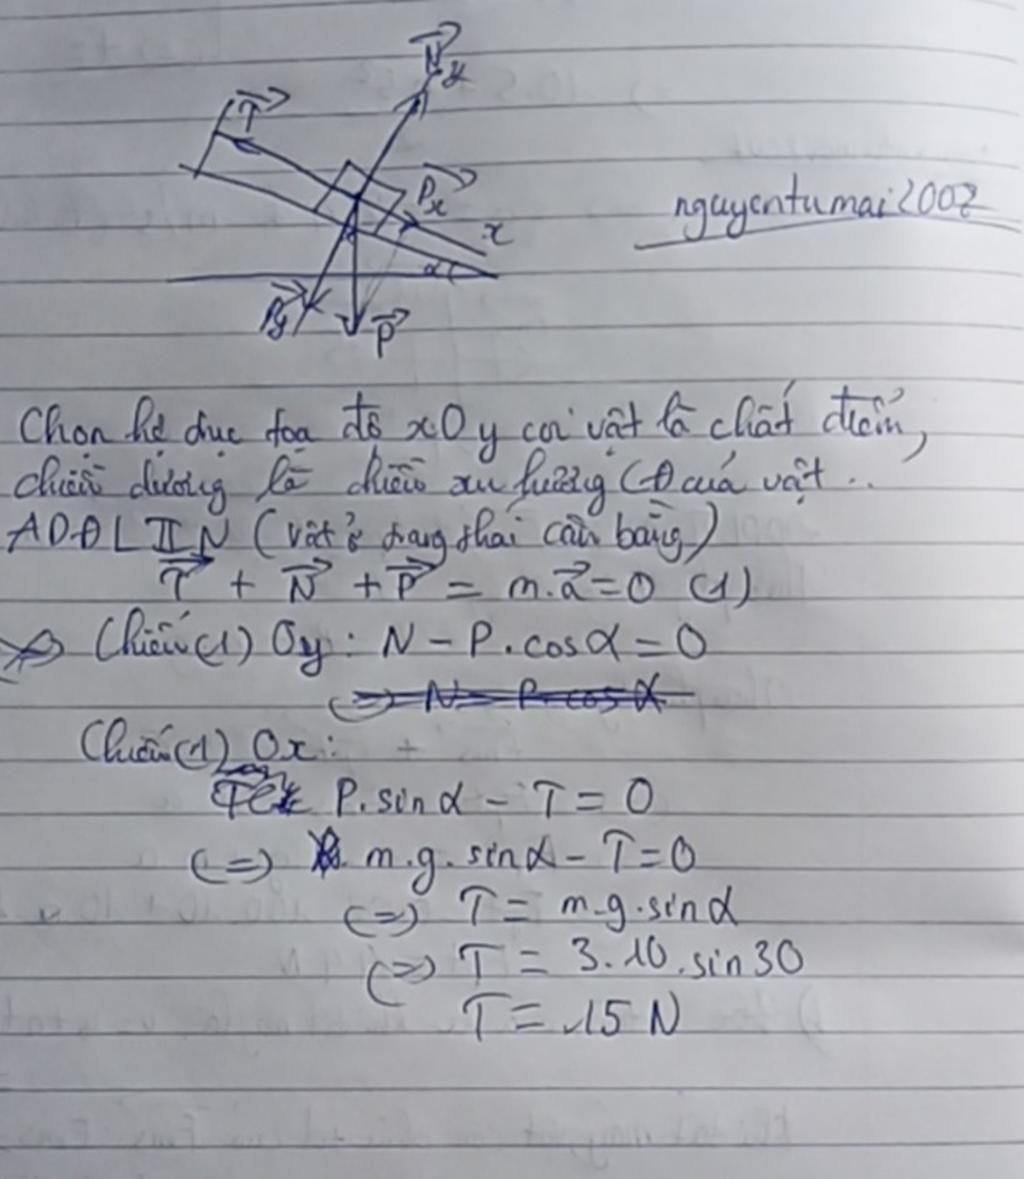 N⃗
y
T⃗
P⃗x
x
nguyentumai2002
α
P⃗y
P⃗
Chọn hệ trục tọa độ xOy coi vật là chất điểm,
chiều dương là chiều xu hướng CĐ của vật..
ADĐL II N (vật ở trạng thái cân bằng)
T⃗ + N⃗ + P⃗ = m.a⃗ = 0 (1)
Chiếu (1) Oy: N - P.cosα = 0
(=) N = P.cosα
Chiếu (1) Ox:
P.sinα - T = 0
(=) m.g.sinα - T = 0
(=) T = m.g.sinα
(=) T = 3.10.sin30
T = 15 N